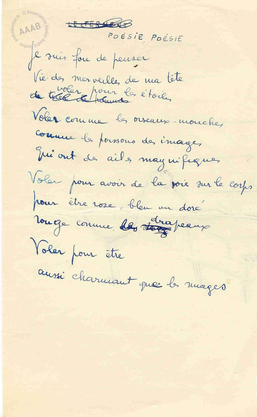 AAAB
POÉSIE POÉSIE
Je suis fou de penser
Vie des merveilles de ma tête
de voler pour les étoiles
Voler comme les oiseaux-mouches
comme les poissons des images
qui ont des ailes magnifiques
Voler pour avoir de la soie sur le corps
pour être rose bleu ou doré
rouge comme les drapeaux
Voler pour être
aussi charmant que les nuages